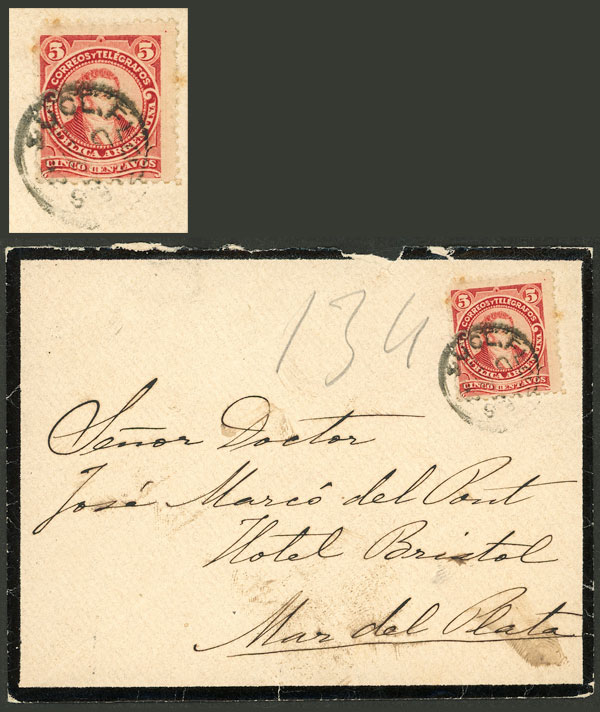 5 5
CORREOS Y TELÉGRAFOS
REPÚBLICA ARGENTINA
CINCO CENTAVOS
134
5 5
CORREOS Y TELÉGRAFOS
REPÚBLICA ARGENTINA
CINCO CENTAVOS
Señor Doctor
José Marcó del Pont
Hotel Bristol
Mar del Plata